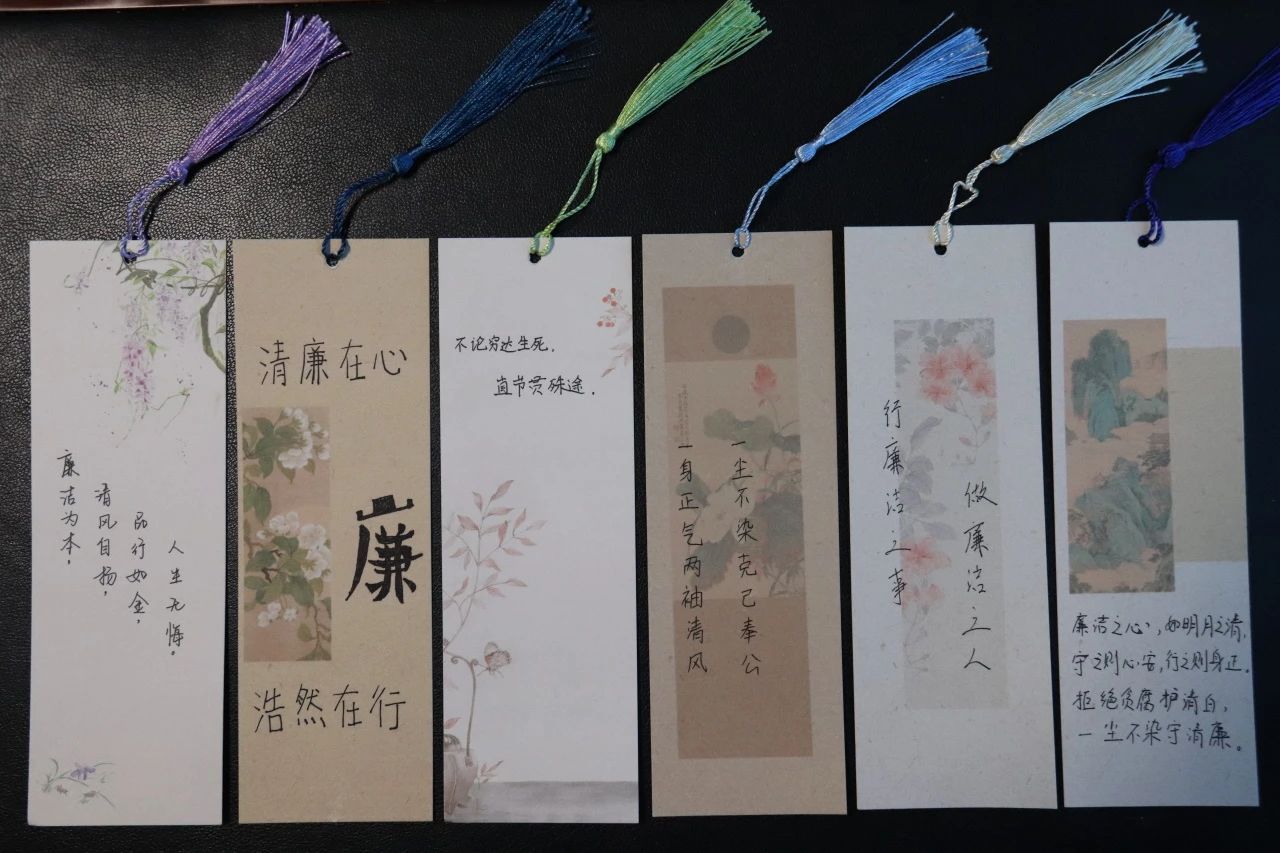 廉洁为本，
清风自扬，
品行如金，
人生无悔。
清廉在心
廉
浩然在行
不论穷达生死，
直节贯殊途．
一身正气两袖清风
一尘不染克己奉公
行廉洁之事
做廉洁之人
廉洁之心，如明月之清，
守之则心安，行之则身正。
拒绝贪腐护清白，
一尘不染守清廉。